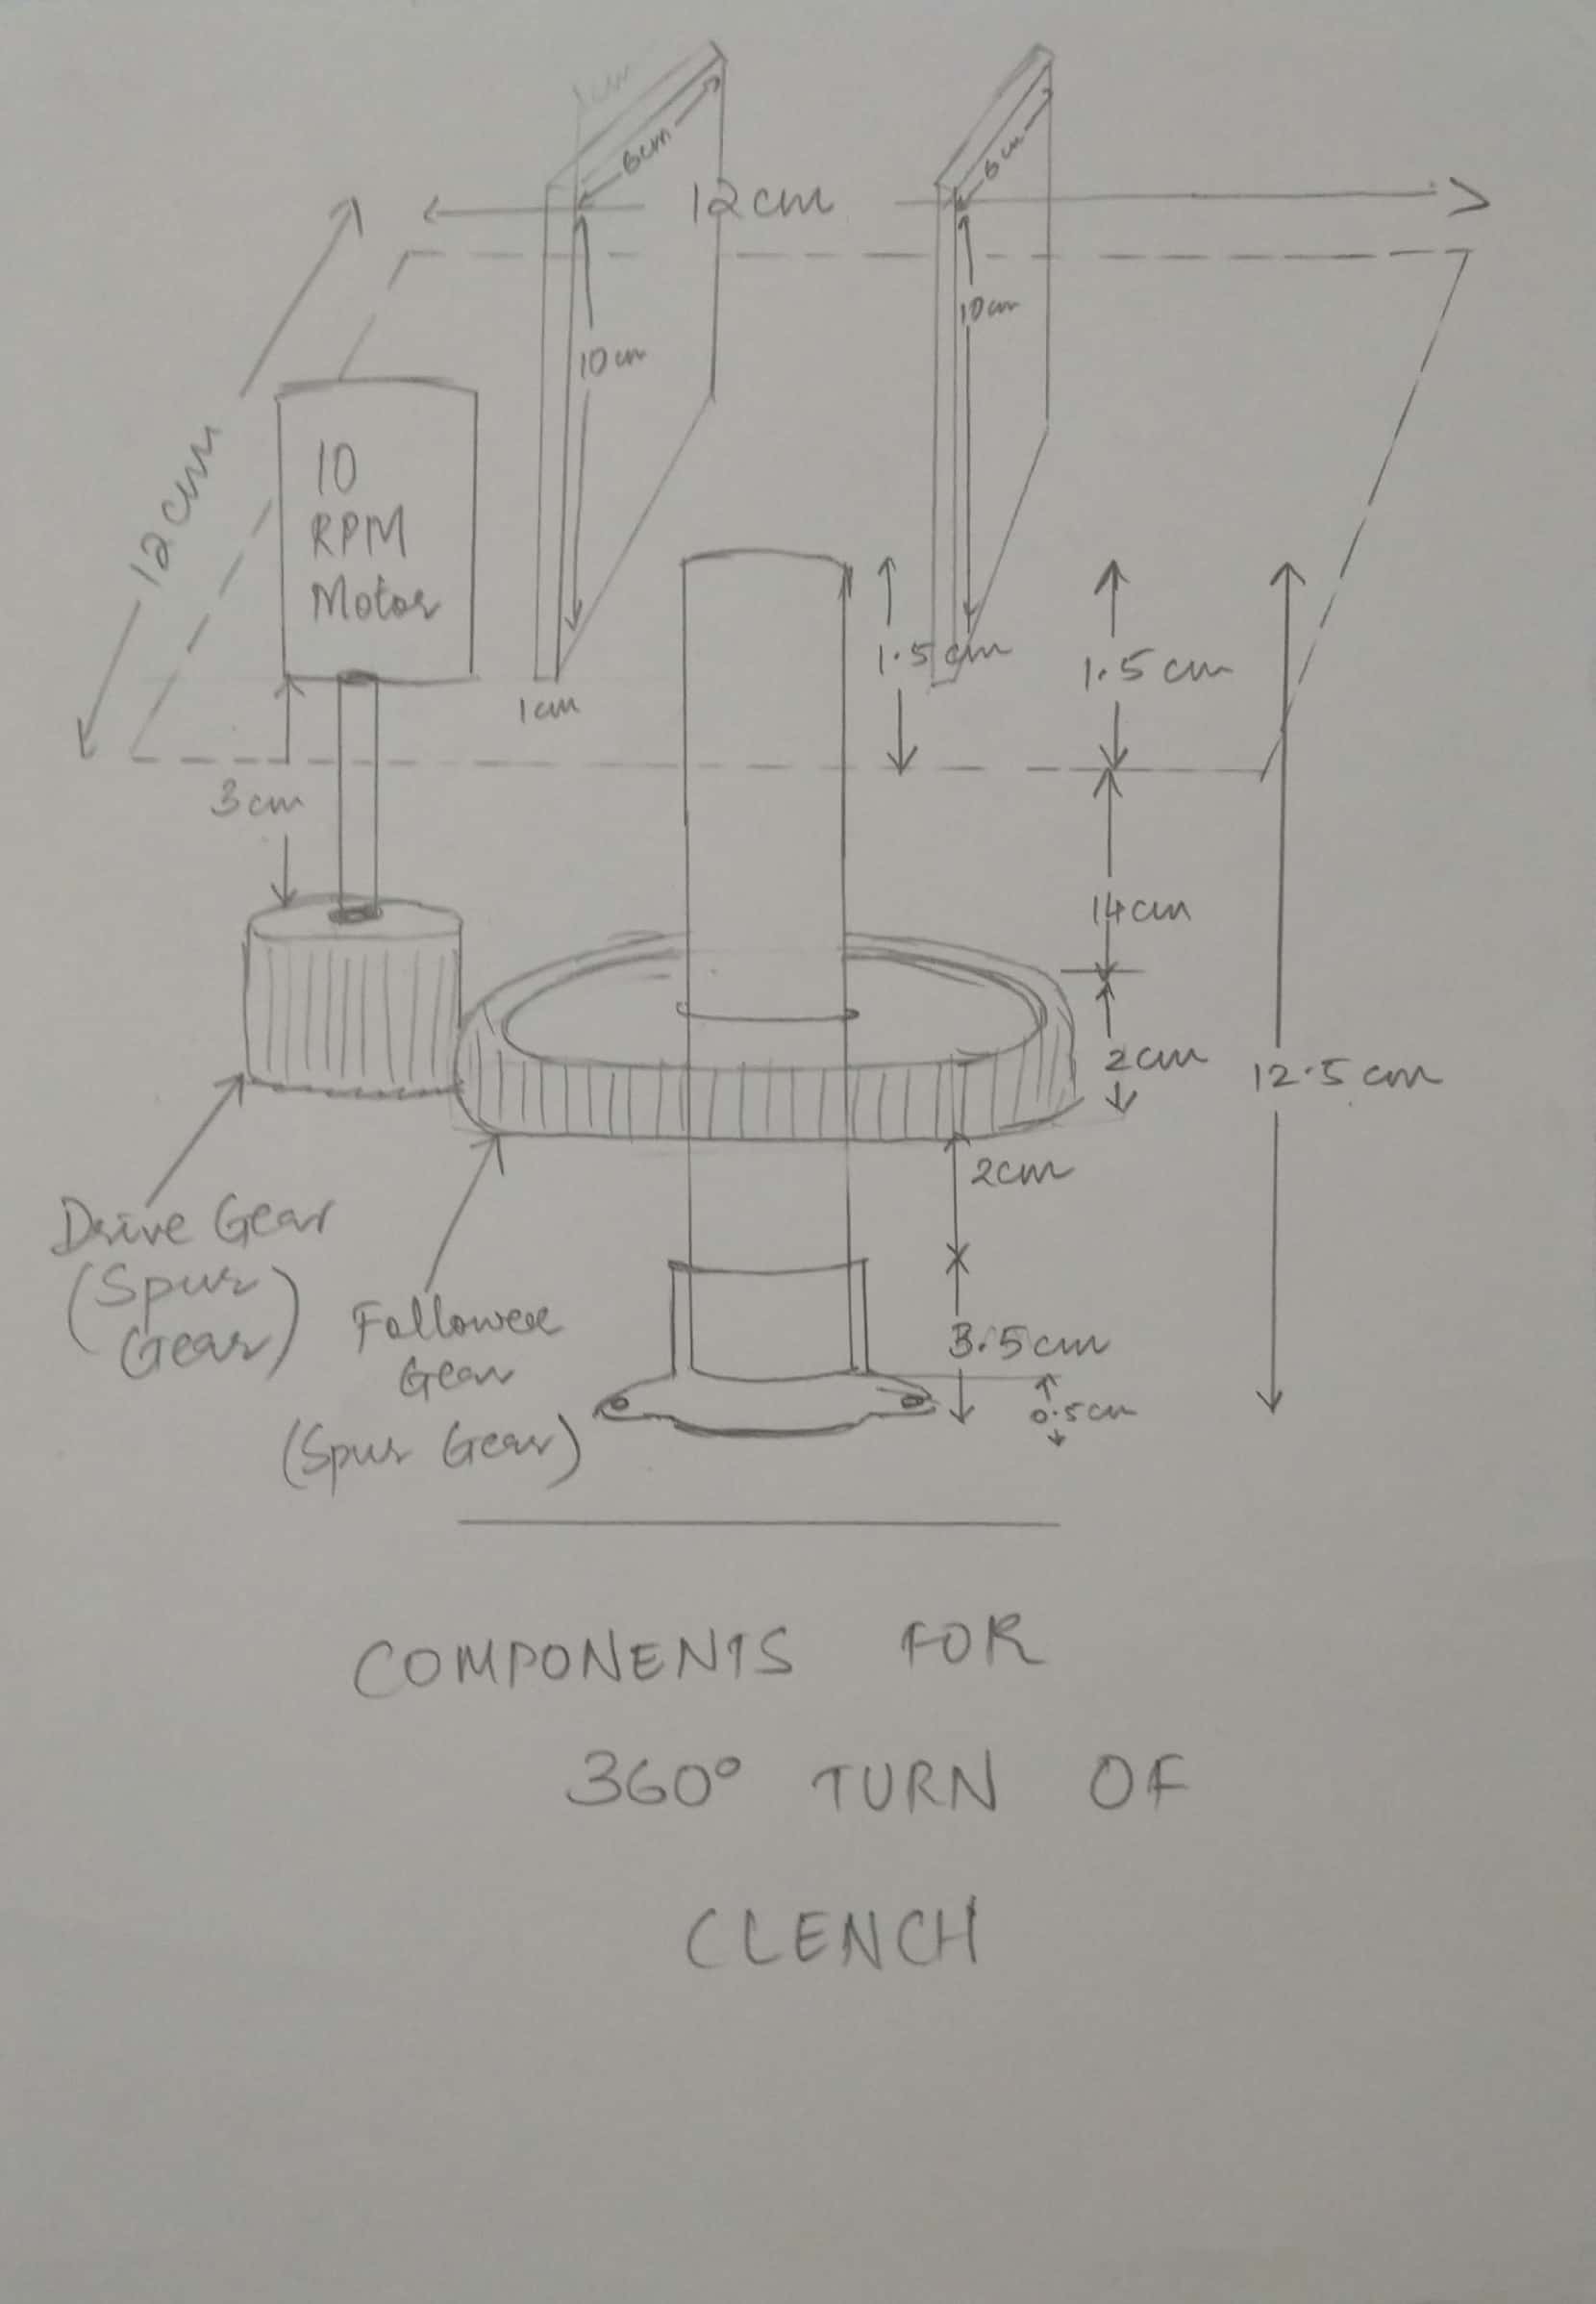 1cm
6cm
6cm
12cm
10cm
10cm
12cm
10
RPM
Motor
1.5cm
1.5cm
1cm
3cm
14cm
2cm
12.5cm
2cm
Drive Gear
(Spur
Gear)
Follower
Gear
(Spur Gear)
3.5cm
0.5cm
COMPONENTS FOR
360° TURN OF
CLENCH